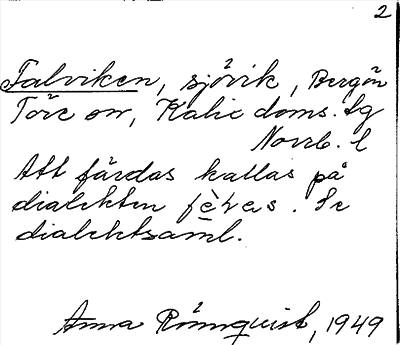 2
Falviken, sjövik, Bergön
Töre sn, Kalix doms. lg
Norrb. l
Att färdas kallas på
dialekten fè̱ṛas. Se
dialektsaml.
Anna Rönnquist, 1949